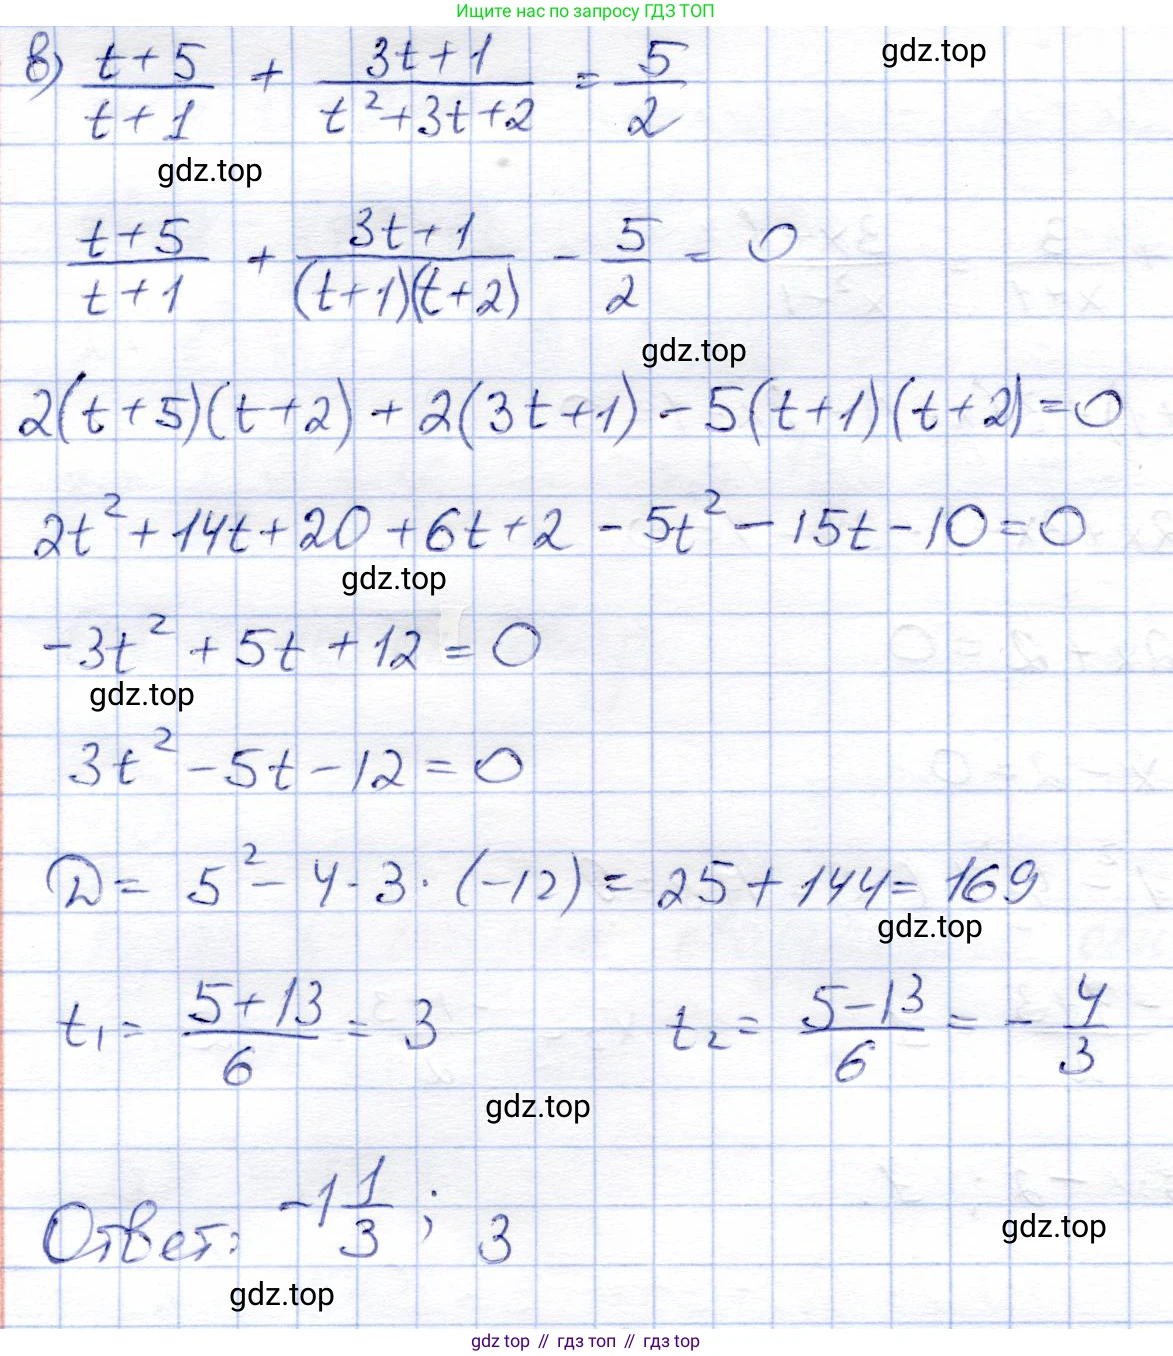 Ищите нас по запросу ГДЗ ТОП
в) (t+5)/(t+1) + (3t+1)/(t²+3t+2) = 5/2
gdz.top
gdz.top
(t+5)/(t+1) + (3t+1)/((t+1)(t+2)) - 5/2 = 0
gdz.top
2(t+5)(t+2) + 2(3t+1) - 5(t+1)(t+2) = 0
2t² + 14t + 20 + 6t + 2 - 5t² - 15t - 10 = 0
gdz.top
-3t² + 5t + 12 = 0
gdz.top
3t² - 5t - 12 = 0
D = 5² - 4·3·(-12) = 25 + 144 = 169
gdz.top
t₁ = (5+13)/6 = 3 t₂ = (5-13)/6 = -4/3
gdz.top
Ответ: -1 1/3 ; 3
gdz.top
gdz.top
gdz top // гдз топ // гдз top